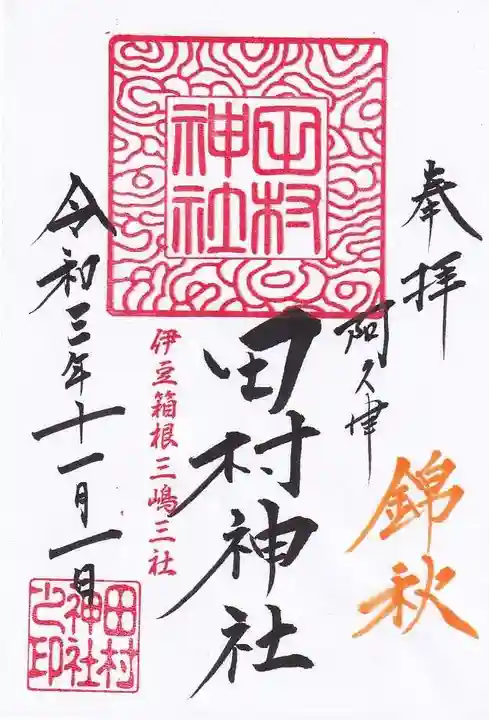 奉拝
錦秋
阿久津
田村神社
田村
神社
伊豆箱根三嶋三社
令和三年十一月一日
田村
神社
之印